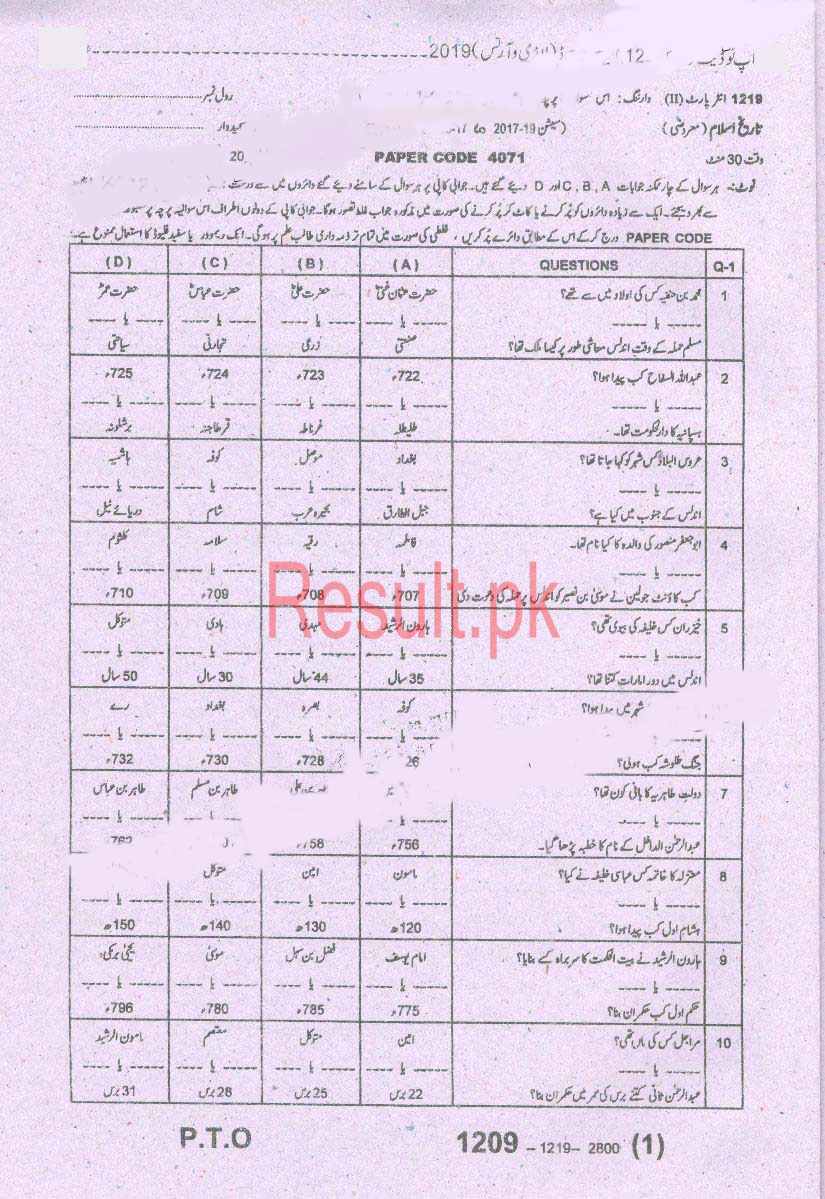 اپ ٹو ڈیٹ 12 2019
1219 انٹر پارٹ (II) وارننگ: اس رول نمبر
تاریخ اسلام (معروضی) (سیشن 19-2017) امیدوار
وقت 30 منٹ PAPER CODE 4071 20
نوٹ:- ہر سوال کے چار ممکنہ جوابات A ,B ,C اور D دیئے گئے ہیں۔ جوابی کاپی پر ہر سوال کے سامنے دیئے گئے دائروں میں سے درست
سے بھر دیجئے۔ ایک سے زیادہ دائروں کو پُر کرنے یا کاٹ کر پُر کرنے کی صورت میں مذکورہ جواب غلط تصور ہوگا۔ جوابی کاپی کے دونوں اطراف اس سوالیہ پرچہ پر
PAPER CODE درج کر کے اس کے مطابق دائرے پُر کریں ، غلطی کی صورت میں تمام تر ذمہ داری طالب علم پر ہوگی۔ انک ریموور یا سفید فلیوڈ کا استعمال ممنوع ہے۔
Q-1 QUESTIONS (A) (B) (C) (D)
1 محمد بن حنفیہ کس کی اولاد میں سے تھے؟ حضرت عثمان غنیؓ حضرت علیؓ حضرت عباسؓ حضرت عمرؓ
----- یا ----- ----- یا ----- ----- یا ----- ----- یا ----- ----- یا -----
مسلم حملہ کے وقت اندلس معاشی طور پر کیسا ملک تھا؟ صنعتی زرعی تجارتی سیاحتی
2 عبداللہ السفاح کب پیدا ہوا؟ 722ء 723ء 724ء 725ء
----- یا ----- ----- یا ----- ----- یا ----- ----- یا ----- ----- یا -----
ہسپانیہ کا دارلحکومت تھا۔ طلیطلہ غرناطہ قرطاجنہ برشلونہ
3 عروس البلاد کس شہر کو کہا جاتا تھا؟ بغداد موصل کوفہ ہاشمیہ
----- یا ----- ----- یا ----- ----- یا ----- ----- یا ----- ----- یا -----
اندلس کے جنوب میں کیا ہے؟ جبل الطارق بحیرہ عرب شام دریائے نیل
4 ابو جعفر منصور کی والدہ کا کیا نام تھا۔ فاطمہ رقیہ سلامہ کلثوم
----- یا ----- ----- یا ----- ----- یا ----- ----- یا ----- ----- یا -----
کب کاؤنٹ جولین نے موسیٰ بن نصیر کو اندلس پر حملہ کی دعوت دی 707ء 708ء 709ء 710ء
Result.pk
5 خیزران کس خلیفہ کی بیوی تھی؟ ہارون الرشید مہدی ہادی متوکل
----- یا ----- ----- یا ----- ----- یا ----- ----- یا ----- ----- یا -----
اندلس میں دور امارات کتنا تھا؟ 35 سال 44 سال 30 سال 50 سال
شہر میں پیدا ہوا؟ کوفہ بصرہ بغداد رے
یا ----- ----- یا ----- ----- یا -----
جنگ طلوشہ کب ہوئی؟ 26 728ء 730ء 732ء
7 دولت طاہریہ کا بانی کون تھا؟ طاہر بن مسلم طاہر بن عباس
----- یا ----- ----- یا ----- ----- یا -----
عبدالرحمٰن الداخل کے نام کا خطبہ پڑھا گیا۔ 756ء 758ء 762
8 معتزلہ کا خاتمہ کس عباسی خلیفہ نے کیا؟ مامون امین متوکل
----- یا ----- ----- یا ----- ----- یا ----- ----- یا ----- ----- یا -----
ہشام اول کب پیدا ہوا؟ 120ھ 130ھ 140ھ 150ھ
9 ہارون الرشید نے بیت الحکمت کا سربراہ کسے بنایا؟ امام یوسف فضل بن سہل موسیٰ یحییٰ برمکی
----- یا ----- ----- یا ----- ----- یا ----- ----- یا ----- ----- یا -----
حکم اول کب حکمران بنا؟ 775ء 785ء 780ء 796ء
10 مراجل کس کی ماں تھی؟ امین متوکل معتصم مامون الرشید
----- یا ----- ----- یا ----- ----- یا ----- ----- یا ----- ----- یا -----
عبدالرحمٰن ثانی کتنے برس کی عمر میں حکمران بنا؟ 22 برس 25 برس 28 برس 31 برس
P.T.O 1209 – 1219 – 2800 (1)